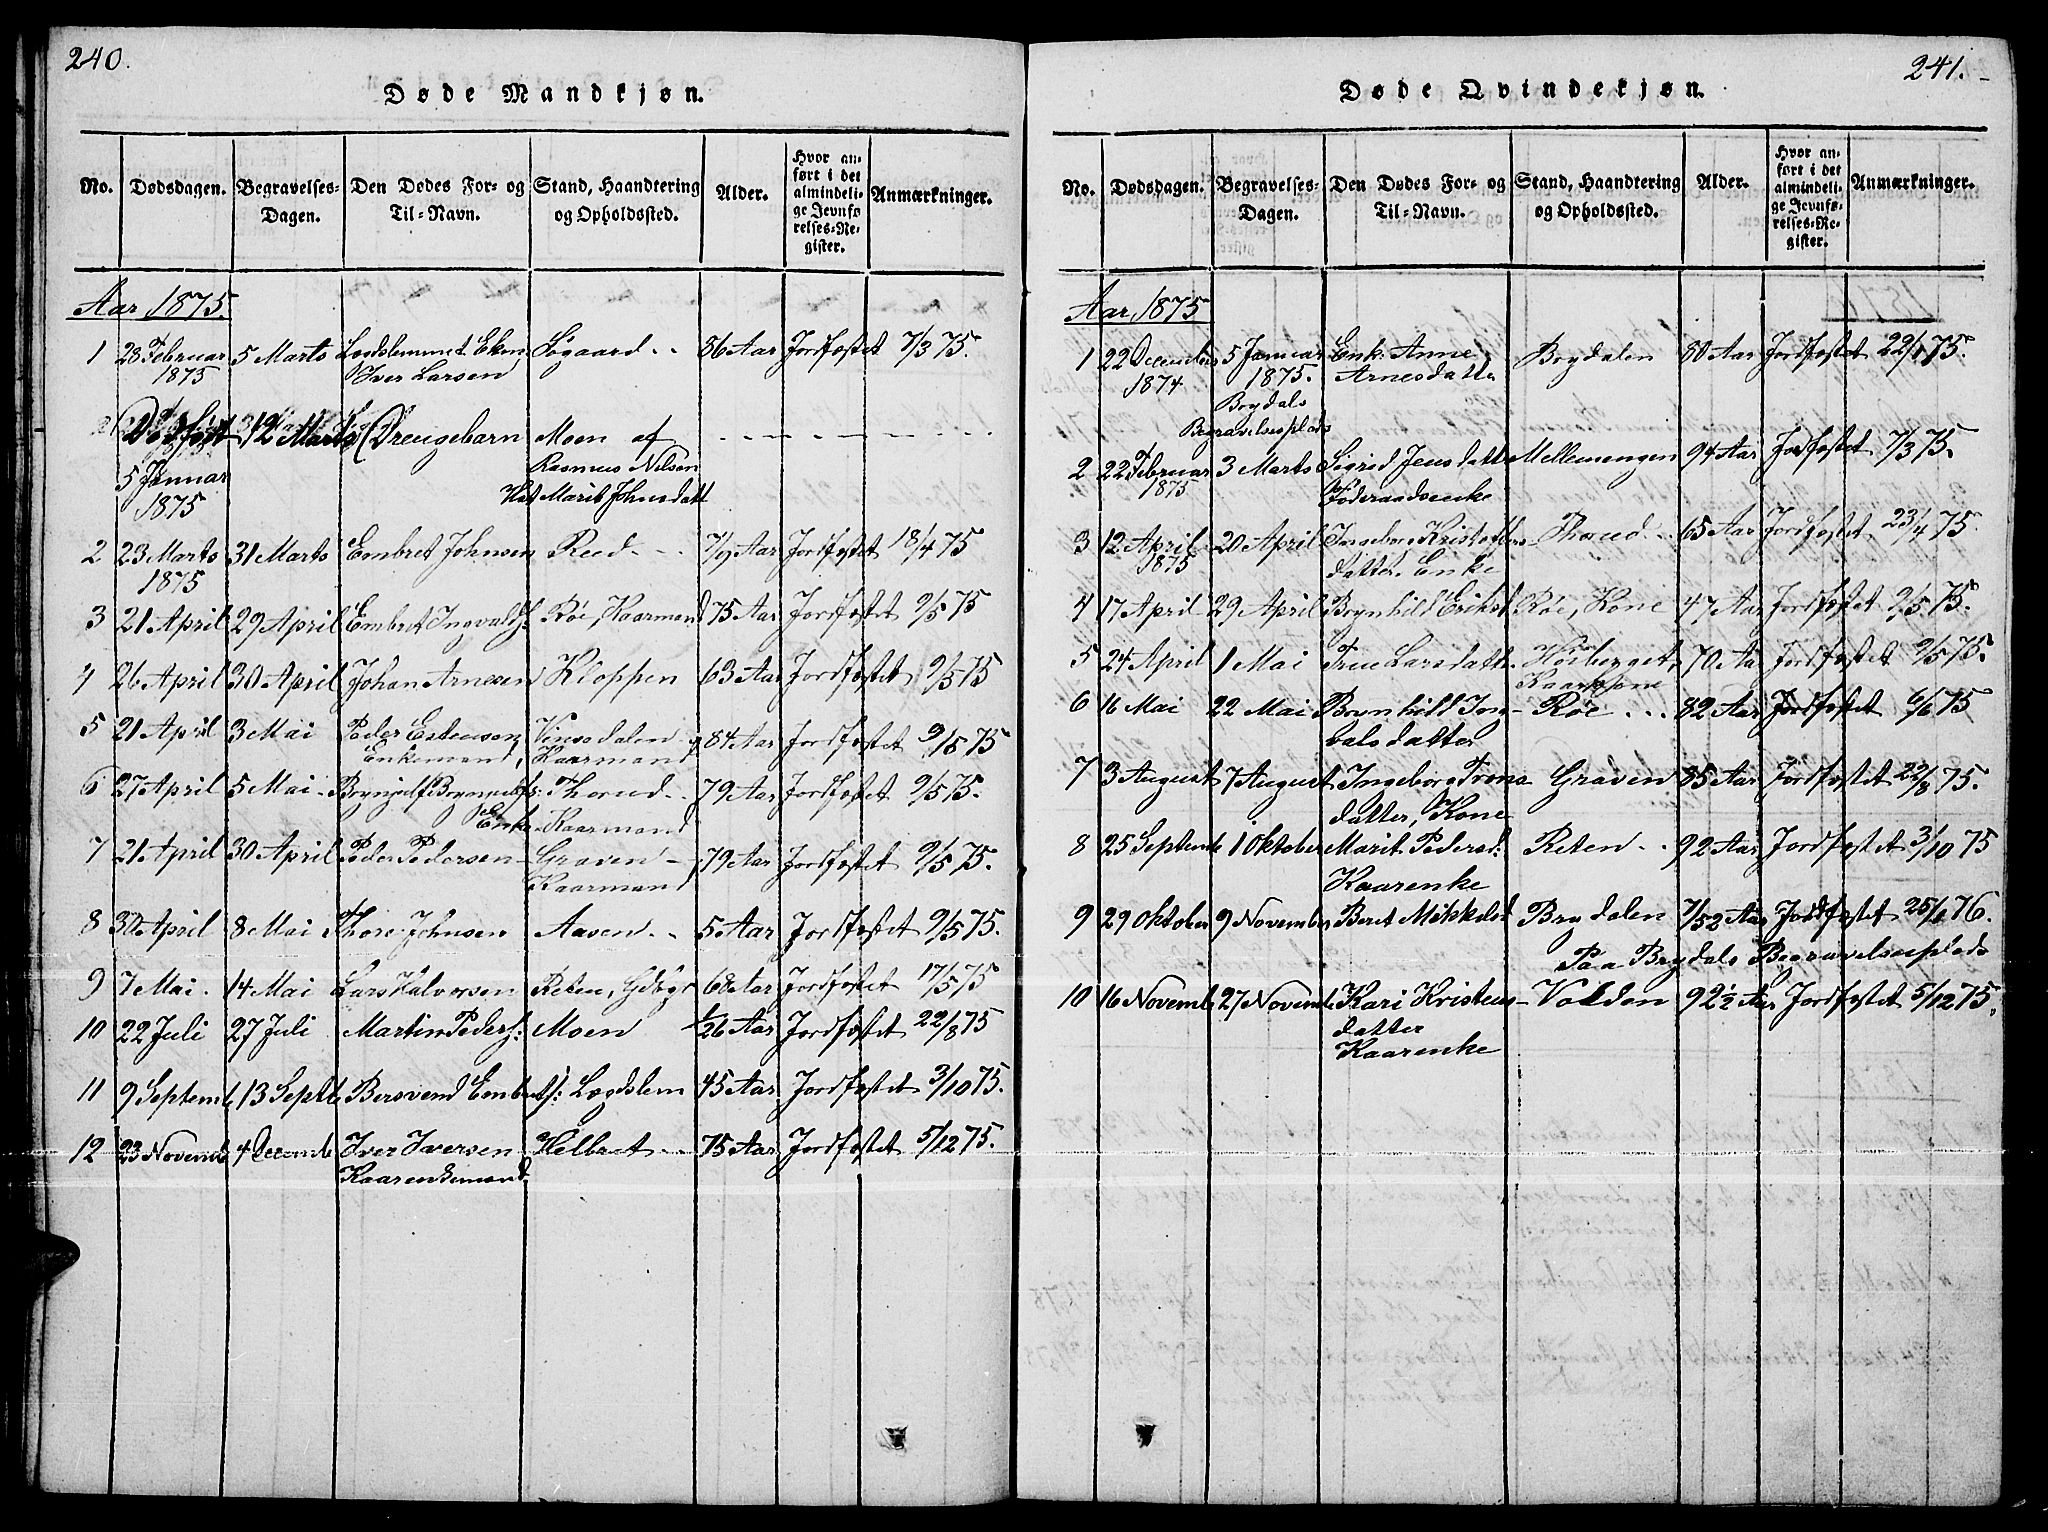 240.
Døde Mandkjøn.
No. Dødsdagen. Begravelses-Dagen. Den Dødes For- og Til-Navn. Stand, Haandtering og Opholdssted. Alder. Hvor anført i det almindelige Jevnførelses-Register. Anmærkninger.
Aar 1875.
1 28 Februar 5 Marts Lægdslemmet Ekm Søgaard 86 Aar Jordfæstet 7/3 75.
1875 Iver Larsen
Dødfødt 12 Marts Drengebarn Moen af
5 Januar Rasmus Nilsen
1875 Marit Johnsdatt
2 23 Marts 31 Marts Embret Johnsen Reed 7/9 Aar Jordfæstet 18/4 75
1875
3 21 April 29 April Embret Ingvalds. Röe, Kaarmand 75 Aar Jordfæstet 9/5 75
4 26 April 30 April Johan Arnesen Kloppen 63 Aar Jordfæstet 9/5 75
5 21 April 3 Mai Peder Estensen, Vinsdalen 84 Aar Jordfæstet 9/5 75
Enkemand, Kaarmand
6 27 April 5 Mai Brynjulf Brynjulfs: Thorud 79 Aar Jordfæstet 9/5 75.
Enke Kaarmand
7 21 April 30 April Peder Pedersen Graven 79 Aar Jordfæstet 9/5 75.
Kaarmand
8 30 April 8 Mai Thore Johnsen Aasen 5 Aar Jordfæstet 9/5 75.
9 7 Mai 14 Mai Lars Halvorsen Reten, Gdbgr 68 Aar Jordfæstet 17/5 75
10 22 Juli 27 Juli Martin Peders: Moen 1/26 Aar Jordfæstet 22/8 75
11 9 Septemb 13 Septb Bersvend Embrets: Lægdslem 45 Aar Jordfæstet 3/10 75.
12 23 Novemb 4 Decemb Iver Iversen Helbret 75 Aar Jordfæstet 5/12 75.
Kaarenkemand.
241.
Døde Qvindekjøn.
No. Dødsdagen. Begravelses-Dagen. Den Dødes For- og Til-Navn. Stand, Haandtering og Opholdssted. Alder. Hvor anført i det almindelige Jevnførelses-Register. Anmærkninger.
Aar, 1875
1 22 December 5 Januar Enk. Anne Brydalen 80 Aar Jordfæstet 22/1 75.
1874 1875. Arnesdatte
Brydals
Begravelsesplads
2 22 Februar 3 Marts Sigrid Jensdatt Mellemengen 94 Aar Jordfæstet 7/3 75.
1875 Føderaadsenke
3 12 April 20 April Ingeborg Kristoffers- Thorud 65 Aar Jordfæstet 23/4 75.
1875 datter. Enke
4 17 April 29 April Brynhild Eriksd Röe, Kone 47 Aar Jordfæstet 9/5 75.
5 24 April 1 Mai True Larsdatt. Hösberget, 70 Aar Jordfæstet 9/5 75.
Kaarkone
6 16 Mai 22 Mai Brynhild Ing- Röe 82 Aar Jordfæstet 6/6 75
balsdatter
7 3 August 7 August Ingeborg Trons Graven 85 Aar Jordfæstet 22/8 75.
datter, Kone
8 25 Septemb 1 Oktober Marit Pedersd: Reten 92 Aar Jordfæstet 3/10 75
Kaarenke
9 29 Oktober 9 November Beret Mikkelsd Brydalen 7/52 Aar Jordfæstet 25/1 76.
Paa Brydals Begravelsesplads
10 16 Novemb 27 Novemb Kari Kristens- Volden 92 1/2 Aar Jordfæstet 5/12 75.
datter
Kaarenke